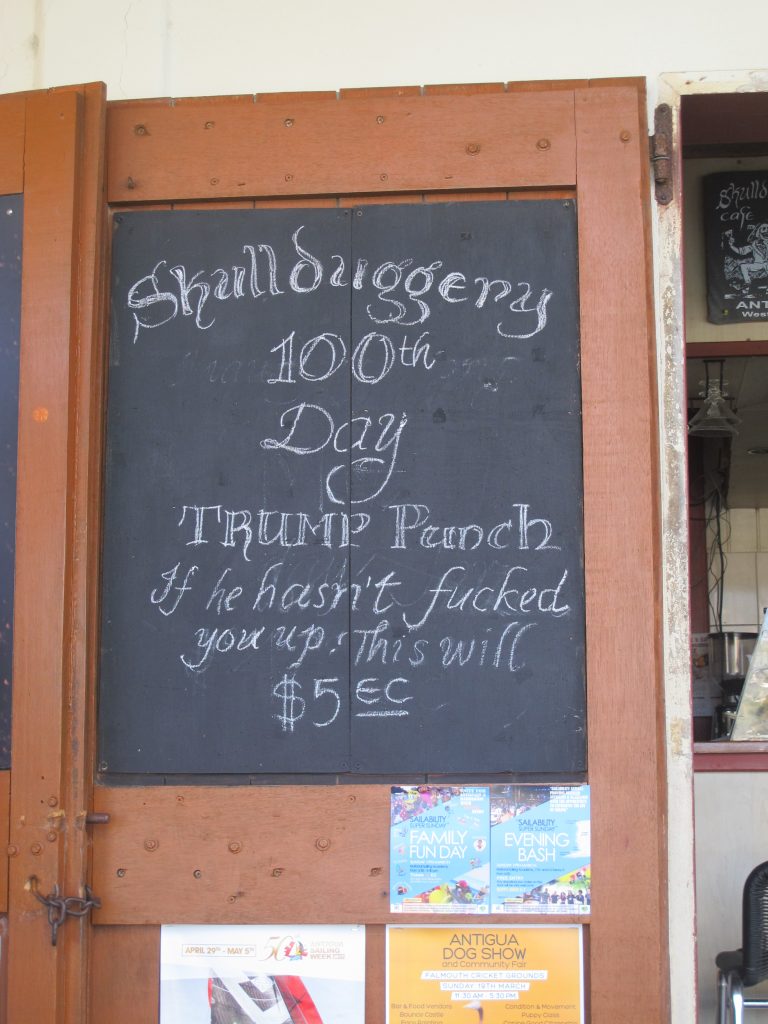 Skullduggery
100th
Day
TRUMP Punch
If he hasn't fucked
you up: This will
$5 EC
Skulld
cafe
ANT
West
SAILABILITY
SUPER SUNDAY
FAMILY
FUN DAY
SAILABILITY
SUPER SUNDAY
EVENING
BASH
APRIL 29TH - MAY 5TH
50
ANTIGUA
SAILING
WEEK
ANTIGUA
DOG SHOW
and Community Fair
FALMOUTH CRICKET GROUNDS
SUNDAY 19TH MARCH
11.30 AM - 5.30 PM
Bar & Food Vendors
Bounce Castle
Face Painting
Condition & Movement
Puppy Class
Canine Good Citizenship